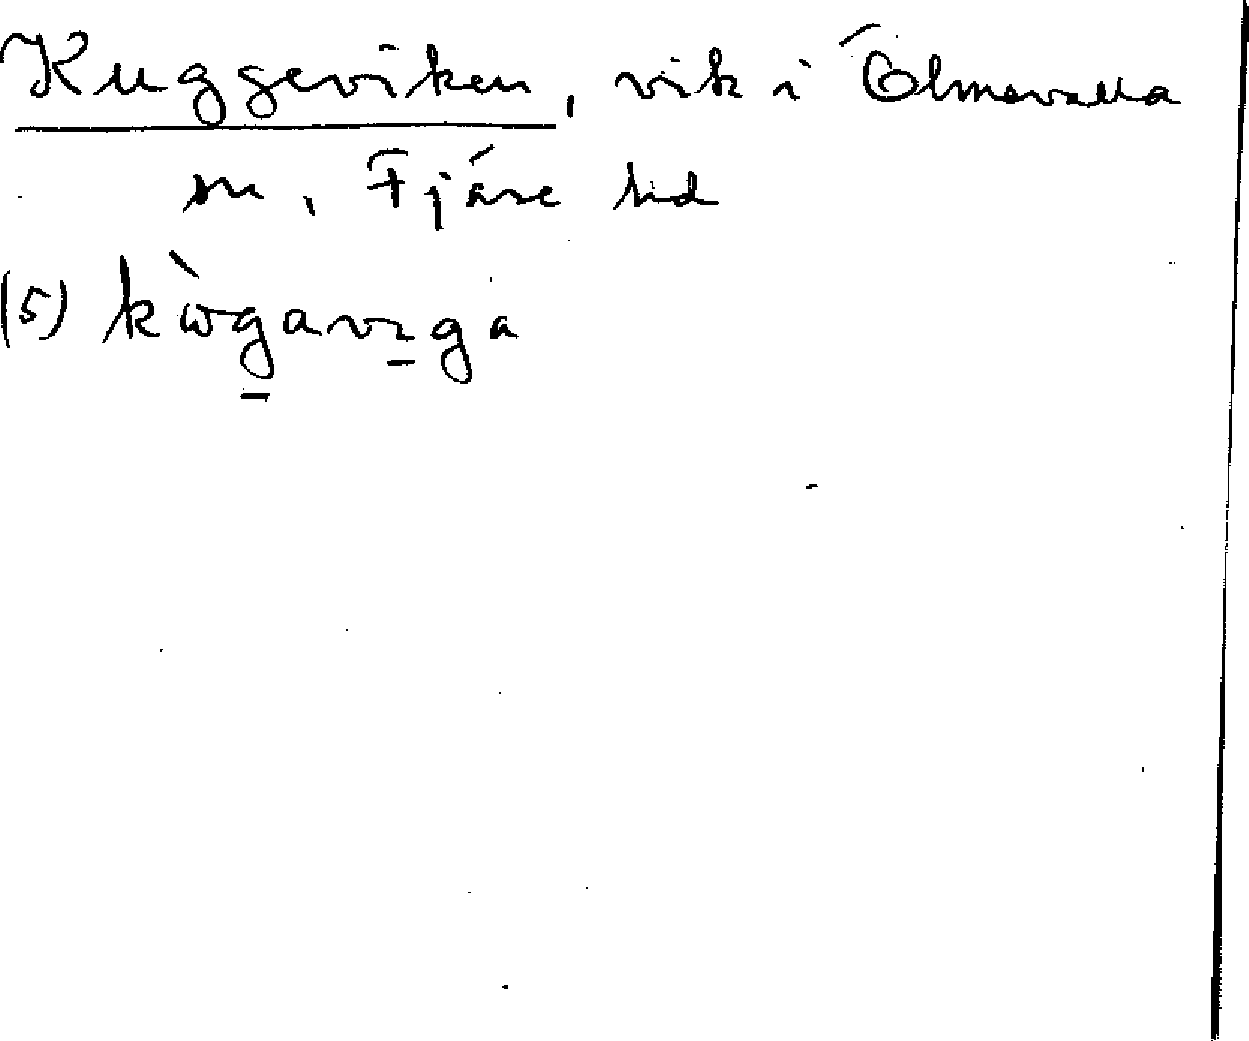 Kuggeviken, vik i Ölmevalla
sn, Fjäre hd
(5) kὼgavıga